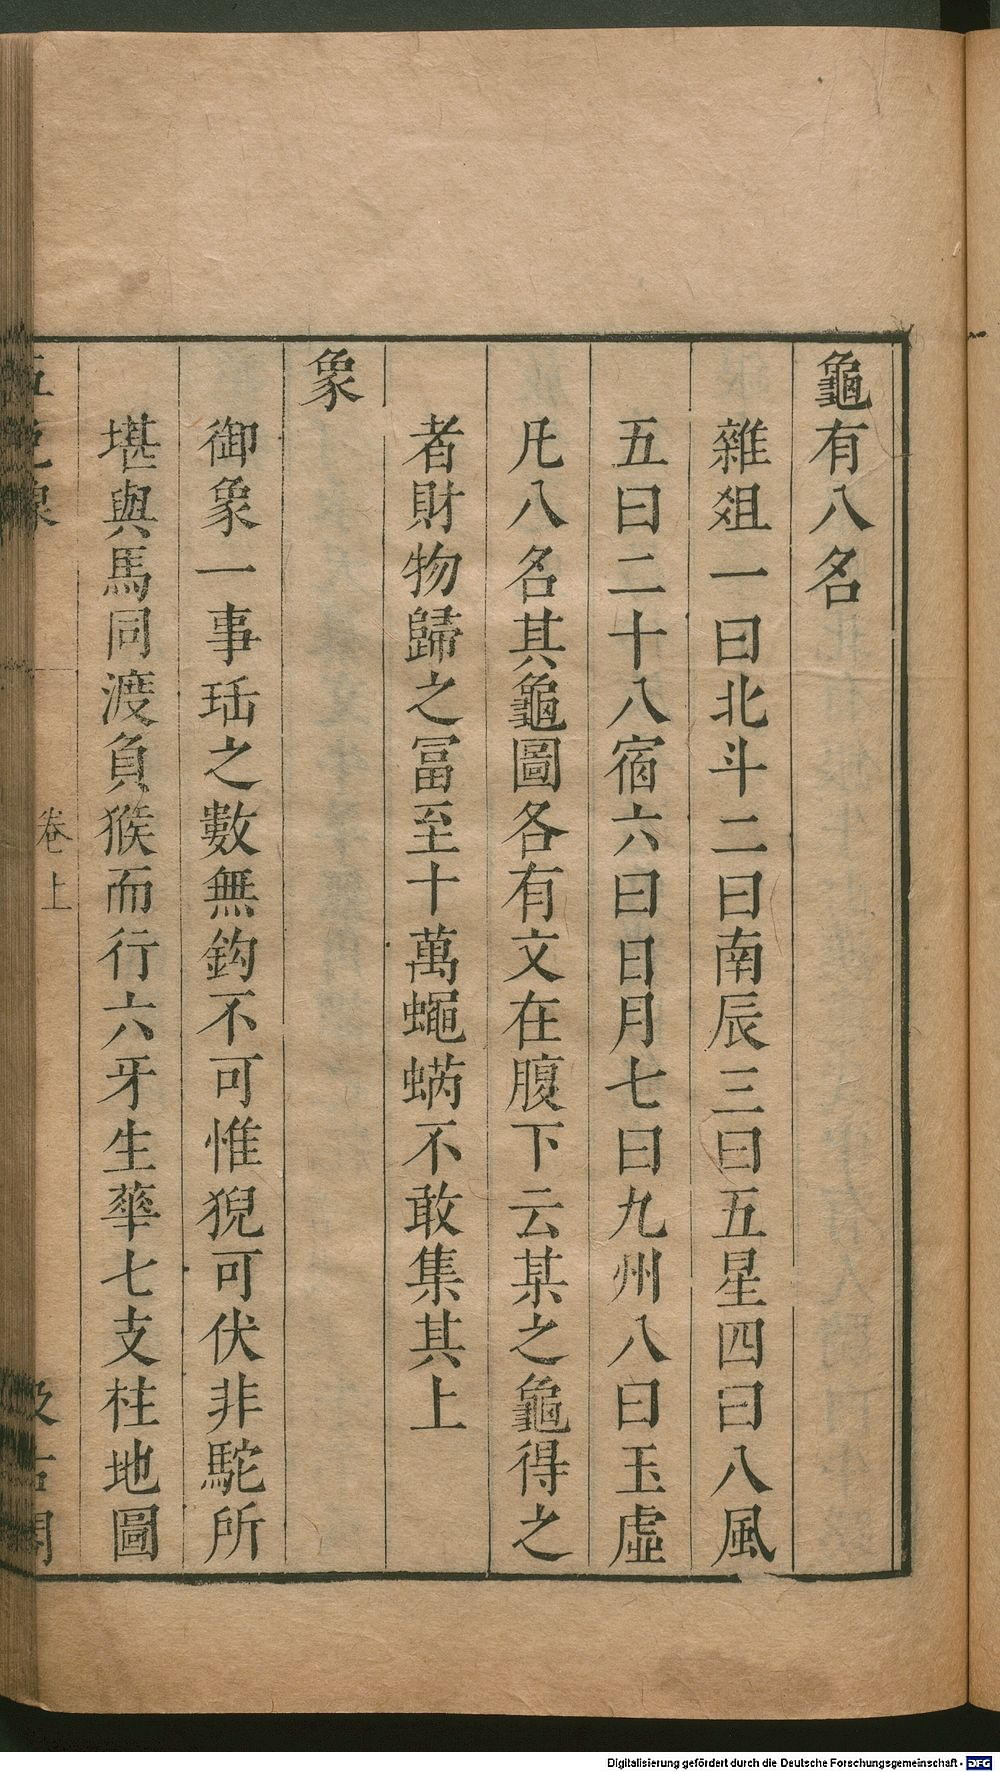 龜有八名
雜爼一曰北斗二曰南辰三曰五星四曰八風
五曰二十八宿六曰日月七曰九州八曰玉虛
凡八名其龜圖各有文在腹下云某之龜得之
者財物歸之冨至十萬蠅蜹不敢集其上
象
御象一事珤之數無鈎不可惟猊可伏非駝所
堪與馬同渡負猴而行六牙生蕐七支柱地圖
卷上
Digitalisierung gefördert durch die Deutsche Forschungsgemeinschaft - DFG